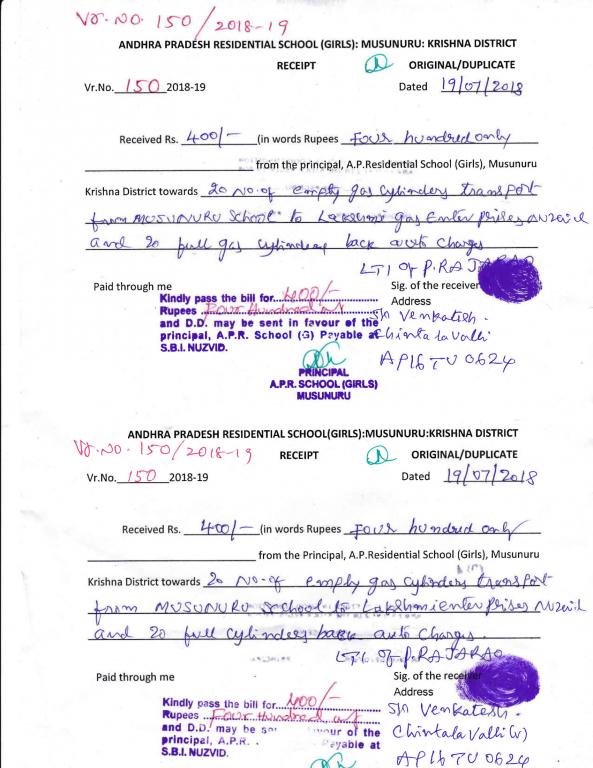 Vr. No. 150/2018-19
ANDHRA PRADESH RESIDENTIAL SCHOOL (GIRLS): MUSUNURU: KRISHNA DISTRICT
RECEIPT ORIGINAL/DUPLICATE
Vr.No. 150 2018-19 Dated 19/07/2018
Received Rs. 400/- (in words Rupees Four hundred only
from the principal, A.P.Residential School (Girls), Musunuru
Krishna District towards 20 No. of empty gas cylinders transport
from MUSUNURU School to Lakshmi gas Enterprises Nuzvid
and 20 full gas cylinders back auto charges
LTI of P. RAJARAO
Paid through me Sig. of the receiver
Kindly pass the bill for 400/- Address
Rupees Four Hundred S/o Venkatesh.
and D.D. may be sent in favour of the
principal, A.P.R. School (G) Payable at Chintalavalli
S.B.I. NUZVID. AP16 TU 0624
PRINCIPAL
A.P.R. SCHOOL (GIRLS)
MUSUNURU
ANDHRA PRADESH RESIDENTIAL SCHOOL(GIRLS):MUSUNURU:KRISHNA DISTRICT
Vr. No. 150/2018-19 RECEIPT ORIGINAL/DUPLICATE
Vr.No. 150 2018-19 Dated 19/07/2018
Received Rs. 400/- (in words Rupees Four hundred only
from the Principal, A.P.Residential School (Girls), Musunuru
Krishna District towards 20 No. of empty gas cylinders transport
from MUSUNURU School to Lakshmi enterprises Nuzvid
and 20 full cylinders back auto charges.
LTI of P. RAJARAO
Paid through me Sig. of the receiver
Address
Kindly pass the bill for 400/- S/o Venkatesh.
Rupees Four Hundred
and D.D. may be favour of the Chintalavalli (v)
principal, A.P.R. Payable at
S.B.I. NUZVID. AP16 TU 0624